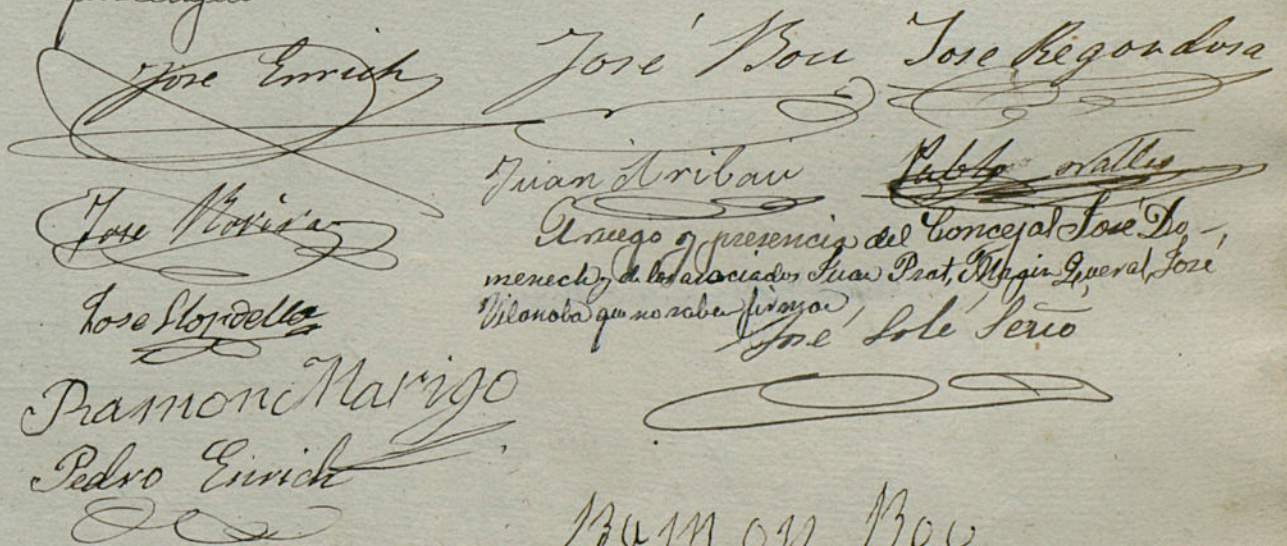 José Enrich José Bou Jose Regordosa
Juan Aribau Pablo Valles
Jose Rovira
A ruego y presencia del Concejal José Do-
menech y de los asociados Juan Prat, Magin Queral, José
Vilanoba que no saben firmar,
Jose Llopdella
José Solé Serio
Ramon Marigo
Pedro Enrich
Ramon Boo